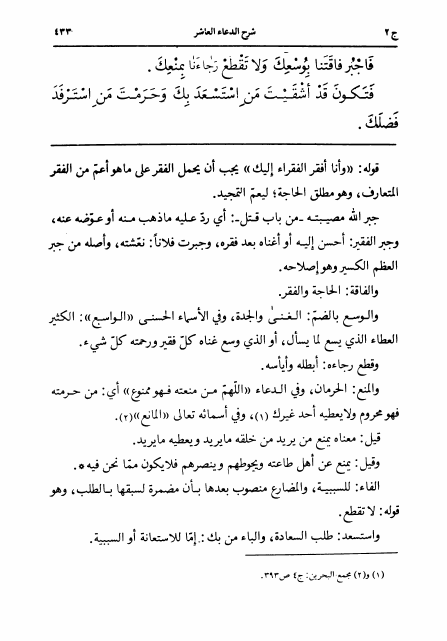 ج٢ شرح الدعاء العاشر ٤٣٣
فَاجْبُر فاقَتَنا بِوُسْعِكَ وَلا تَقْطَعْ رَجاءَنا بِمَنْعِكَ .
فَتَكونَ قَدْ أَشْقَيْتَ مَنِ اسْتَسْعَدَ بِكَ وَحَرَمْتَ مَنِ اسْتَرْفَدَ
فَضْلَكَ .
قوله: «وأنا أفقر الفقراء إليك» يجب أن يحمل الفقر على ماهو أعمّ من الفقر
المتعارف، وهو مطلق الحاجة؛ ليعمّ التمجيد.
جبر الله مصيبته ـ من باب قتل ـ: أي ردّ عليه ماذهب منه أو عوّضه عنه،
وجبر الفقير: أحسن إليه أو أغناه بعد فقره، وجبرت فلاناً: نعّشته، وأصله من جبر
العظم الكسير وهو إصلاحه.
والفاقة: الحاجة والفقر.
والوسع بالضمّ: الغنىٰ والجدة، وفي الأسماء الحسنى «الواسع»: الكثير
العطاء الذي يسع لما يسأل، أو الذي وسع غناه كلّ فقير ورحمته كلّ شيء.
وقطع رجاءه: أبطله وأيأسه.
والمنع: الحرمان، وفي الدعاء «اللّهمّ من منعته فهو ممنوع» أي: من حرمته
فهو محروم ولايعطيه أحد غيرك (١)، وفي أسمائه تعالى «المانع»(٢).
قيل: معناه يمنع من يريد من خلقه مايريد ويعطيه مايريد.
وقيل: يمنع عن أهل طاعته ويحوطهم وينصرهم فلايكون ممّا نحن فيه ٥.
الفاء: للسببية، والمضارع منصوب بعدها بأن مضمرة لسبقها بالطلب، وهو
قوله: لا تقطع.
واستسعد: طلب السعادة، والباء من بك: إمّا للاستعانة أو السببية.
(١) و(٢) مجمع البحرين: ج٤ ص٣٩٣.